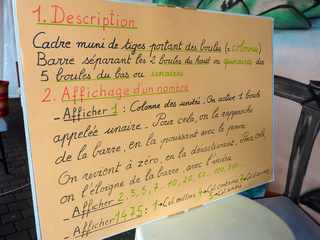 1. Description
Cadre muni de tiges portant des boules (= colonnes)
Barre séparant les 2 boules du haut ou quinaires des
5 boules du bas ou unaires
2. Affichage d'un nombre
- Afficher 1 : Colonne des unités. On active 1 boule
appelée unaire. Pour cela, on la rapproche
de la barre, en la poussant avec le pouce.
On revient à zéro, en la désactivant. Pour cela
on l'éloigne de la barre, avec l'index.
- Afficher 2, 3, 5, 7 - 10, 20,
- Afficher 1475 : 1 col milliers 4 col centaines 7 col dizaines
5 col unités